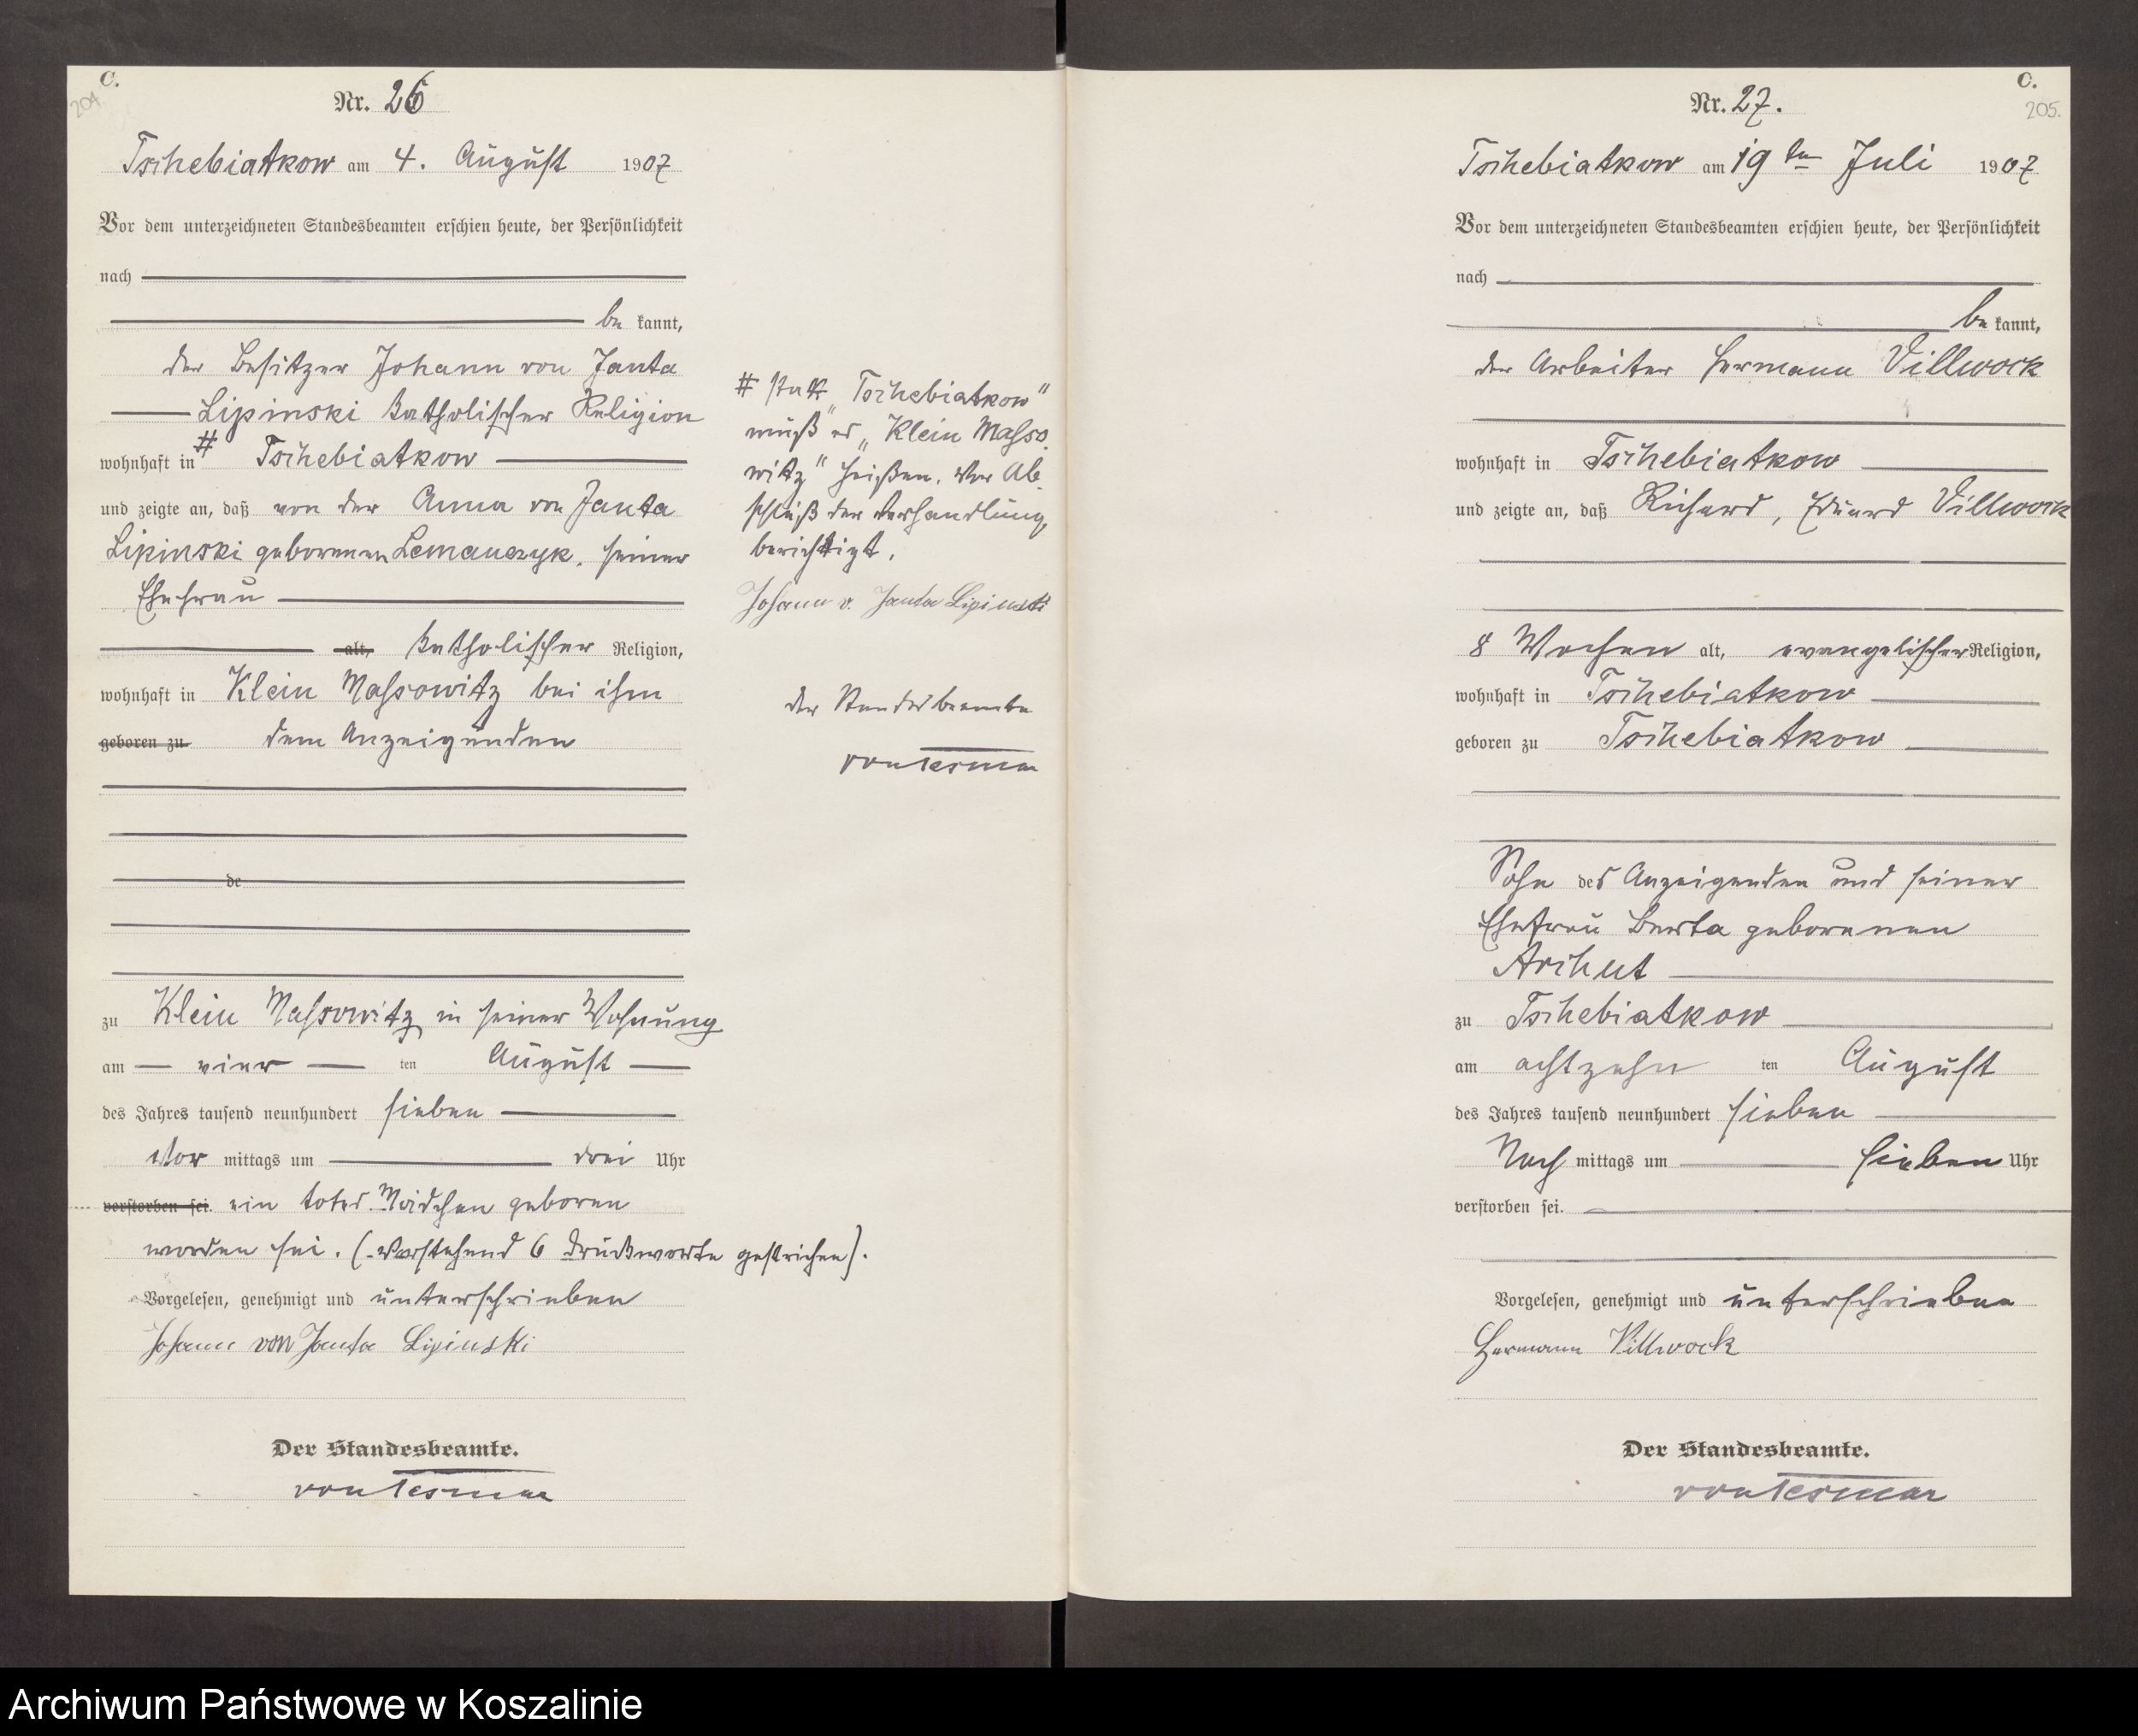 C.
204.
Nr. 26
Tschebiatkow am 4. August 1907
Vor dem unterzeichneten Standesbeamten erschien heute, der Persönlichkeit
nach
be kannt,
der Besitzer Johann von Janta
Lipinski katholischer Religion
wohnhaft in # Tschebiatkow
und zeigte an, daß von der Anna von Janta
Lipinski geborenen Lemanczyk, seiner
Ehefrau
alt, katholischer Religion,
wohnhaft in Klein Massowitz bei ihm
geboren zu dem Anzeigenden
de
zu Klein Massowitz in seiner Wohnung
am vier ten August
des Jahres tausend neunhundert sieben
Vor mittags um drei Uhr
verstorben sei. ein totes Mädchen geboren
worden sei. (Vorstehend 6 Druckworte gestrichen).
Vorgelesen, genehmigt und unterschrieben
Johann von Janta Lipinski
Der Standesbeamte.
von Tesmar
# statt „Tschebiatkow"
muß es „Klein Masso
witz" heißen. Vor Ab
schluß der Verhandlung,
berichtigt.
Johann v. Janta Lipinski
der Standesbeamte
von Tesmar
C.
205.
Nr. 27.
Tschebiatkow am 19ten Juli 1907
Vor dem unterzeichneten Standesbeamten erschien heute, der Persönlichkeit
nach
be kannt,
der Arbeiter Hermann Villwock
wohnhaft in Tschebiatkow
und zeigte an, daß Richard, Eduard Villwock
8 Wochen alt, evangelischer Religion,
wohnhaft in Tschebiatkow
geboren zu Tschebiatkow
Sohn des Anzeigenden und seiner
Ehefrau Berta geborenen
Aschut
zu Tschebiatkow
am achtzehn ten August
des Jahres tausend neunhundert sieben
Nach mittags um sieben Uhr
verstorben sei.
Vorgelesen, genehmigt und unterschrieben
Hermann Villwock
Der Standesbeamte.
von Tesmar
Archiwum Państwowe w Koszalinie